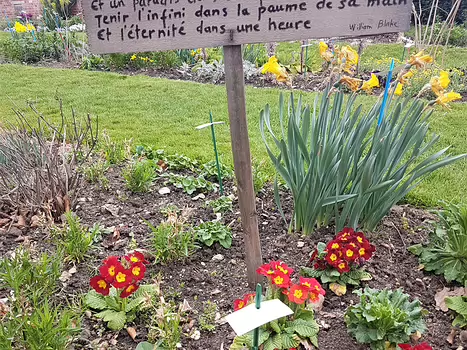 Et un paradis
Tenir l'infini dans la paume de sa main
et l'éternité dans une heure
William Blake